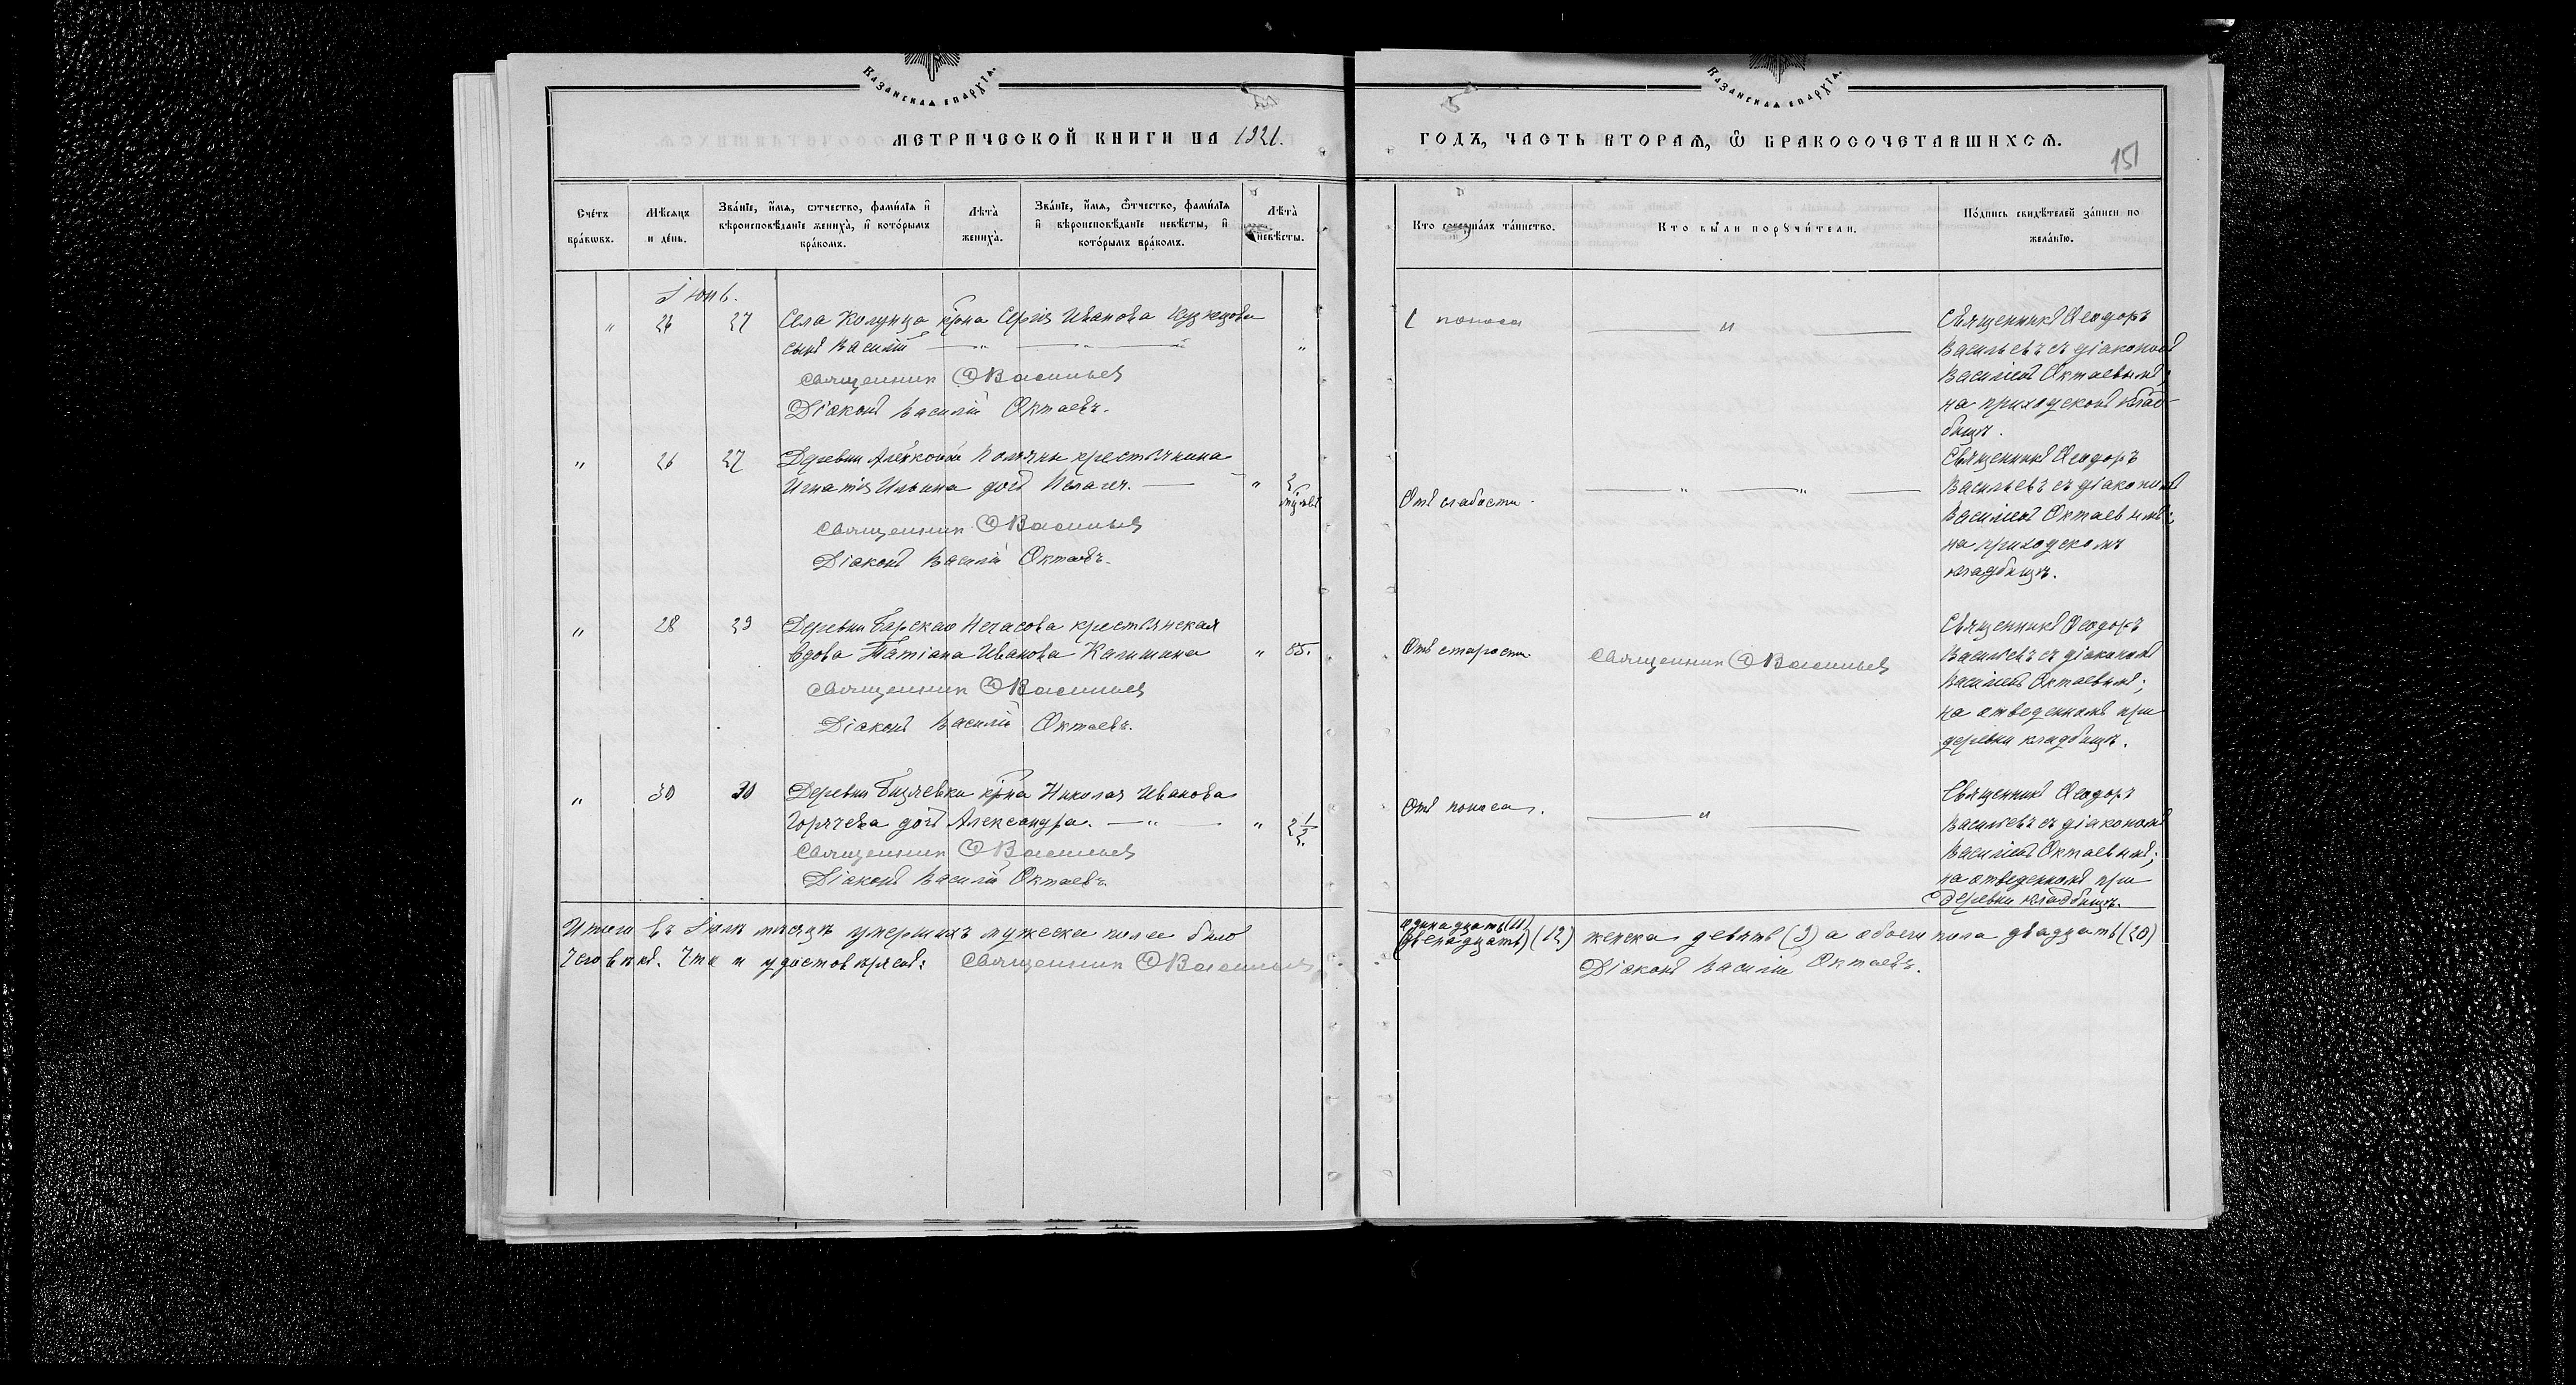 Казанская епархіа.
Казанская епархіа.
МЕТРИЧЕСКОЙ КНИГИ НА 1921.
ГОДЪ, ЧАСТЬ ВТОРАѦ, Ѽ БРАКОСОЧЕТАВШИХСѦ.
151
Сче́тъ бра́кѡвъ.
Мѣсѧцъ и де́нь.
Зва́нїе, и҆́мѧ, ѻтчество, фами́лїѧ и҆ вѣроисповѣданїе жениха̀, и҆ кото́рымъ бра́комъ.
Лѣта̀ жениха̀.
Зва́нїе, и҆́мѧ, ѻтчество, фами́лїѧ и҆ вѣроисповѣданїе невѣ́сты, и҆ кото́рымъ бра́комъ.
Лѣта̀ невѣ́сты.
Кто̀ соверша́лъ та́инство.
Кто̀ бы́ли порꙋчи́тели.
По́дпись свидѣ́телей за́писи по жела́нїю.
Іюнь.
" 26 27 Села Колунца крна Сергія Иванова Кузнецова
сынъ Василій — " — " — "
Священник Ѳ Васильев
Діаконъ Василій Октаевъ.
поноса
— " —
Священникъ Ѳеодоръ
Васильевъ съ діакономъ
Василіемъ Октаевымъ;
на приходскомъ клад-
бищѣ.
" 26 27 Деревни Поляны крестьянина
Игнатія Ильина дочь Пелагея. — " 2
Священник Ѳ Васильев
Діаконъ Василій Октаевъ.
Отъ слабости.
— " — " —
Священникъ Ѳеодоръ
Васильевъ съ діакономъ
Василіемъ Октаевымъ;
на приходскомъ
кладбищѣ.
" 28 29 Деревни Барская Нечасова крестьянская
вдова Татіана Иванова Калинина " 85.
Священник Ѳ Васильев
Діаконъ Василій Октаевъ.
Отъ старости.
Священник Ѳ Васильев
Священникъ Ѳеодоръ
Васильевъ съ діакономъ
Василіемъ Октаевымъ;
на отведенномъ при
деревни кладбищѣ.
" 30 30 Деревни Бизяевки крна Николая Иванова
Горячева дочь Александра. — " — " 2 1/2.
Священник Ѳ Васильев
Діаконъ Василій Октаевъ.
Отъ поноса.
— " —
Священникъ Ѳеодоръ
Васильевъ съ діакономъ
Василіемъ Октаевымъ;
на отведенномъ при
деревни кладбищѣ.
Итого въ Іюнѣ мѣсяцѣ умершихъ мужеска пола было
одинадцать (11)
(двенадцать) (12) женска девять (9) а обоего пола двадцать (20)
человѣкъ. Что и удостовѣряемъ: Священник Ѳ Васильев
Діаконъ Василій Октаевъ.